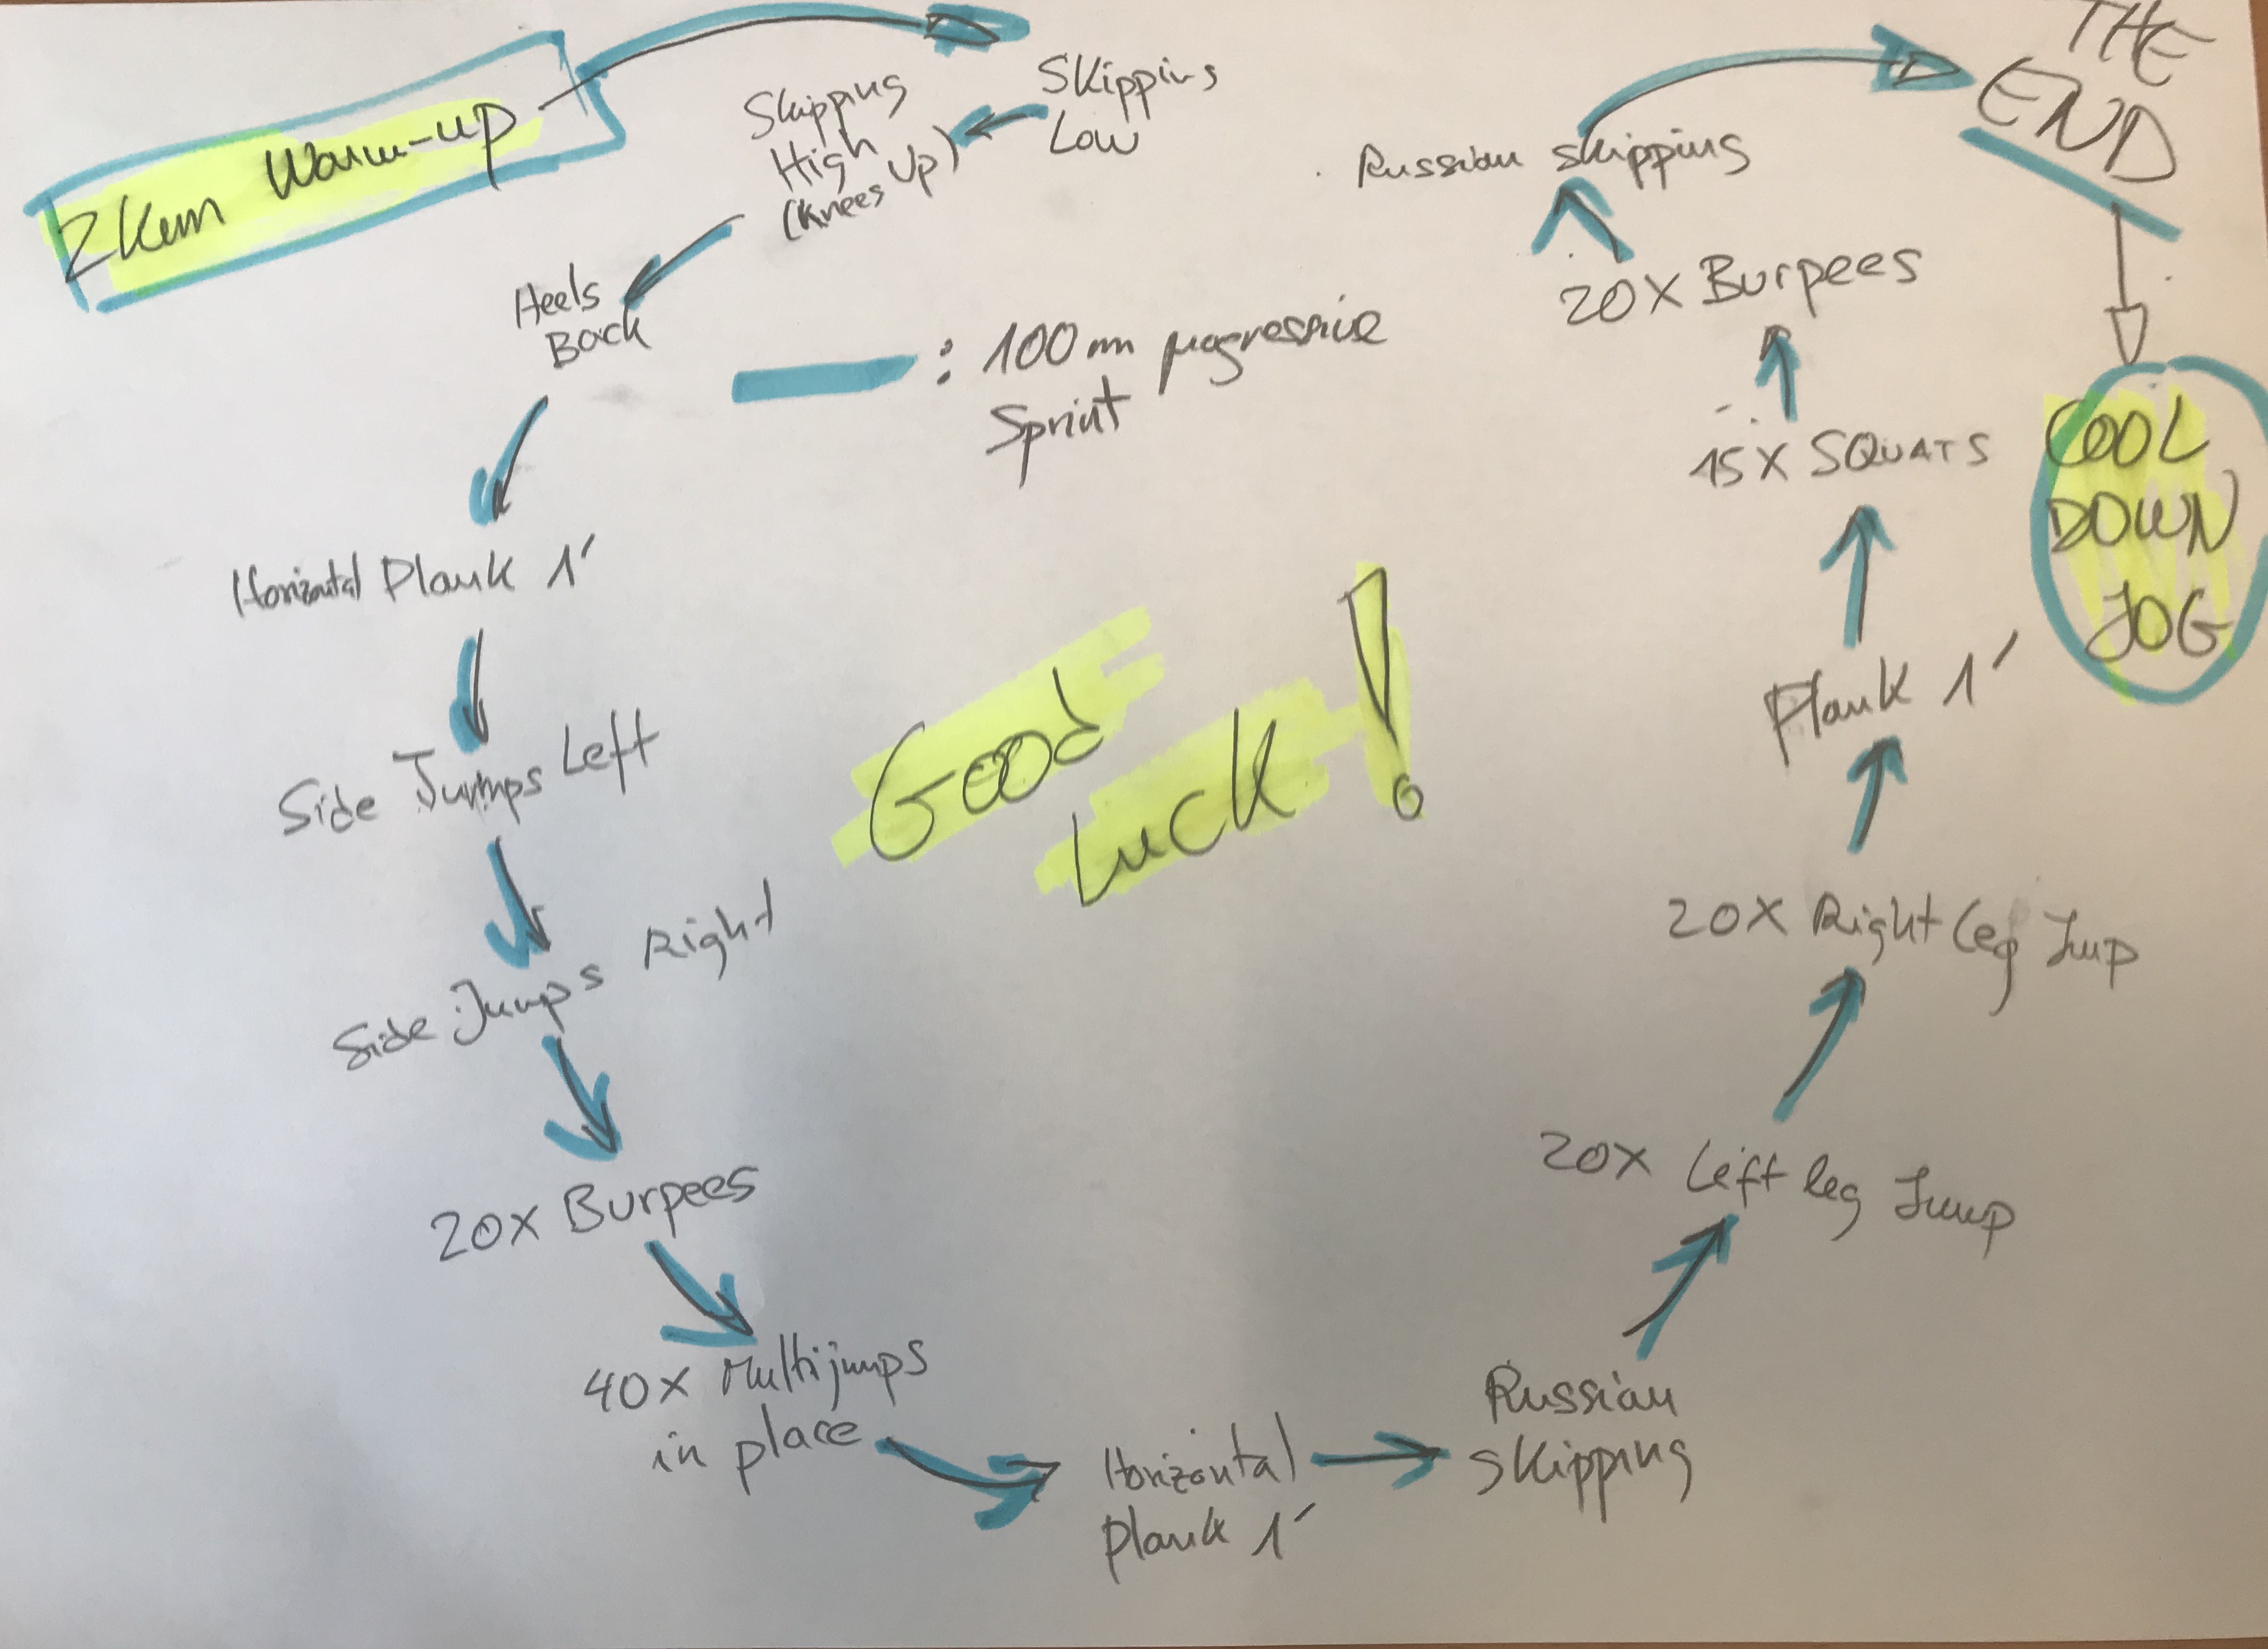 2Km Warm-up
Skipping
Low
Skipping
High
(Knees Up)
Heels
Back
: 100m progressive
Sprint
Horizontal Plank 1'
Side Jumps Left
Side Jumps Right
20X Burpees
40X Multijumps
in place
Horizontal
Plank 1'
Russian
Skipping
20X Left leg Jump
20X Right leg Jump
Plank 1'
15X SQUATS
20X Burpees
Russian skipping
THE
END
COOL
DOWN
JOG
Good
Luck!